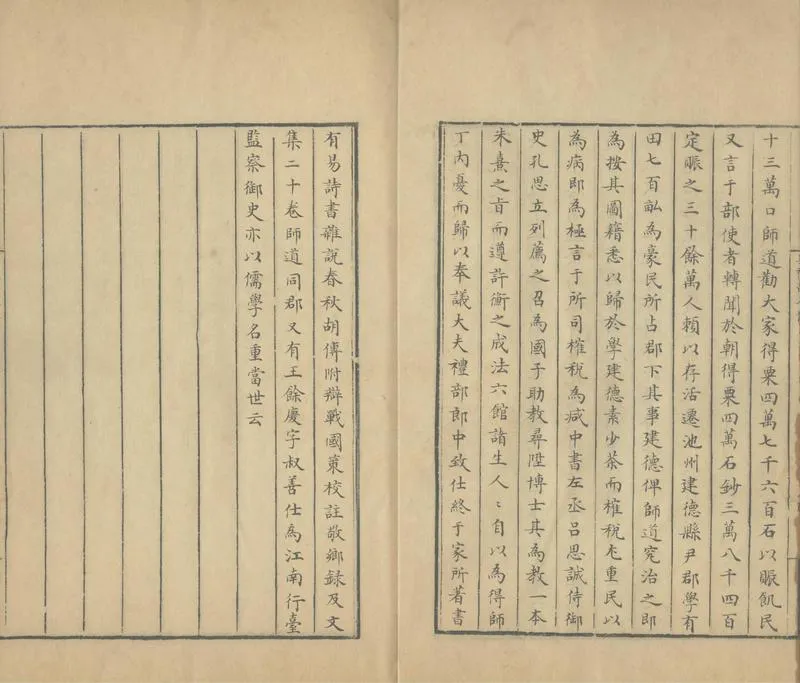 十三萬口師道勸大家得粟四萬七千六百石以賑飢民
又言于部使者轉聞於朝得粟四萬石鈔三萬八千四百
定賑之三十餘萬人賴以存活遷池州建德縣尹郡學有
田七百畝為豪民所占郡下其事建德俾師道究治之即
為按其圖籍悉以歸於學建德素少茶而榷稅尤重民以
為病即為極言于所司榷稅為減中書左丞呂思誠侍御
史孔思立列薦之召為國子助教尋陞博士其為教一本
朱熹之旨而遵許衡之成法六館諸生人〻自以為得師
丁內憂而歸以奉議大夫禮部郎中致仕終于家所著書
有易詩書雜說春秋胡傳附辯戰國策校註敬鄉録及文
集二十卷師道同郡又有王餘慶字叔善仕為江南行臺
監察御史亦以儒學名重當世云